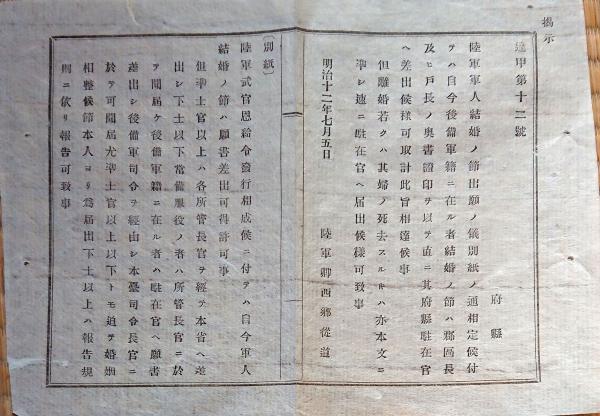 揭示
達甲第十二號
府縣
陸軍軍人結婚ノ節出願ノ儀別紙ノ通相定候付
テハ自今後備軍籍ニ在ル者結婚ノ節ハ郡區長
及ヒ戸長ノ奥書證印ヲ以テ直ニ其府縣駐在官
ヘ差出候樣可取計此旨相達候事
但離婚若クハ其婦ノ死去スルキハ亦本文ニ
準シ速ニ駐在官ヘ届出候樣可致事
明治十二年七月五日
陸軍卿西郷從道
〔別紙〕
陸軍武官恩給令發行相成候ニ付テハ自今軍人
結婚ノ節ハ願書差出可得許可事
但準士官以上ハ各所管長官ヲ經テ本省ヘ差
出シ下士以下常備服役ノ者ハ所管長官ニ於
テ聞届ケ後備軍籍ニ在ル者ハ駐在官ヘ願書
差出シ後備軍司令ヲ經由シ本臺司令長官ニ
於テ可聞届尤準士官以上以下トモ追テ婚姻
相整候節本人ヨリ爲届出下士以上ハ報告規
則ニ依リ報告可致事